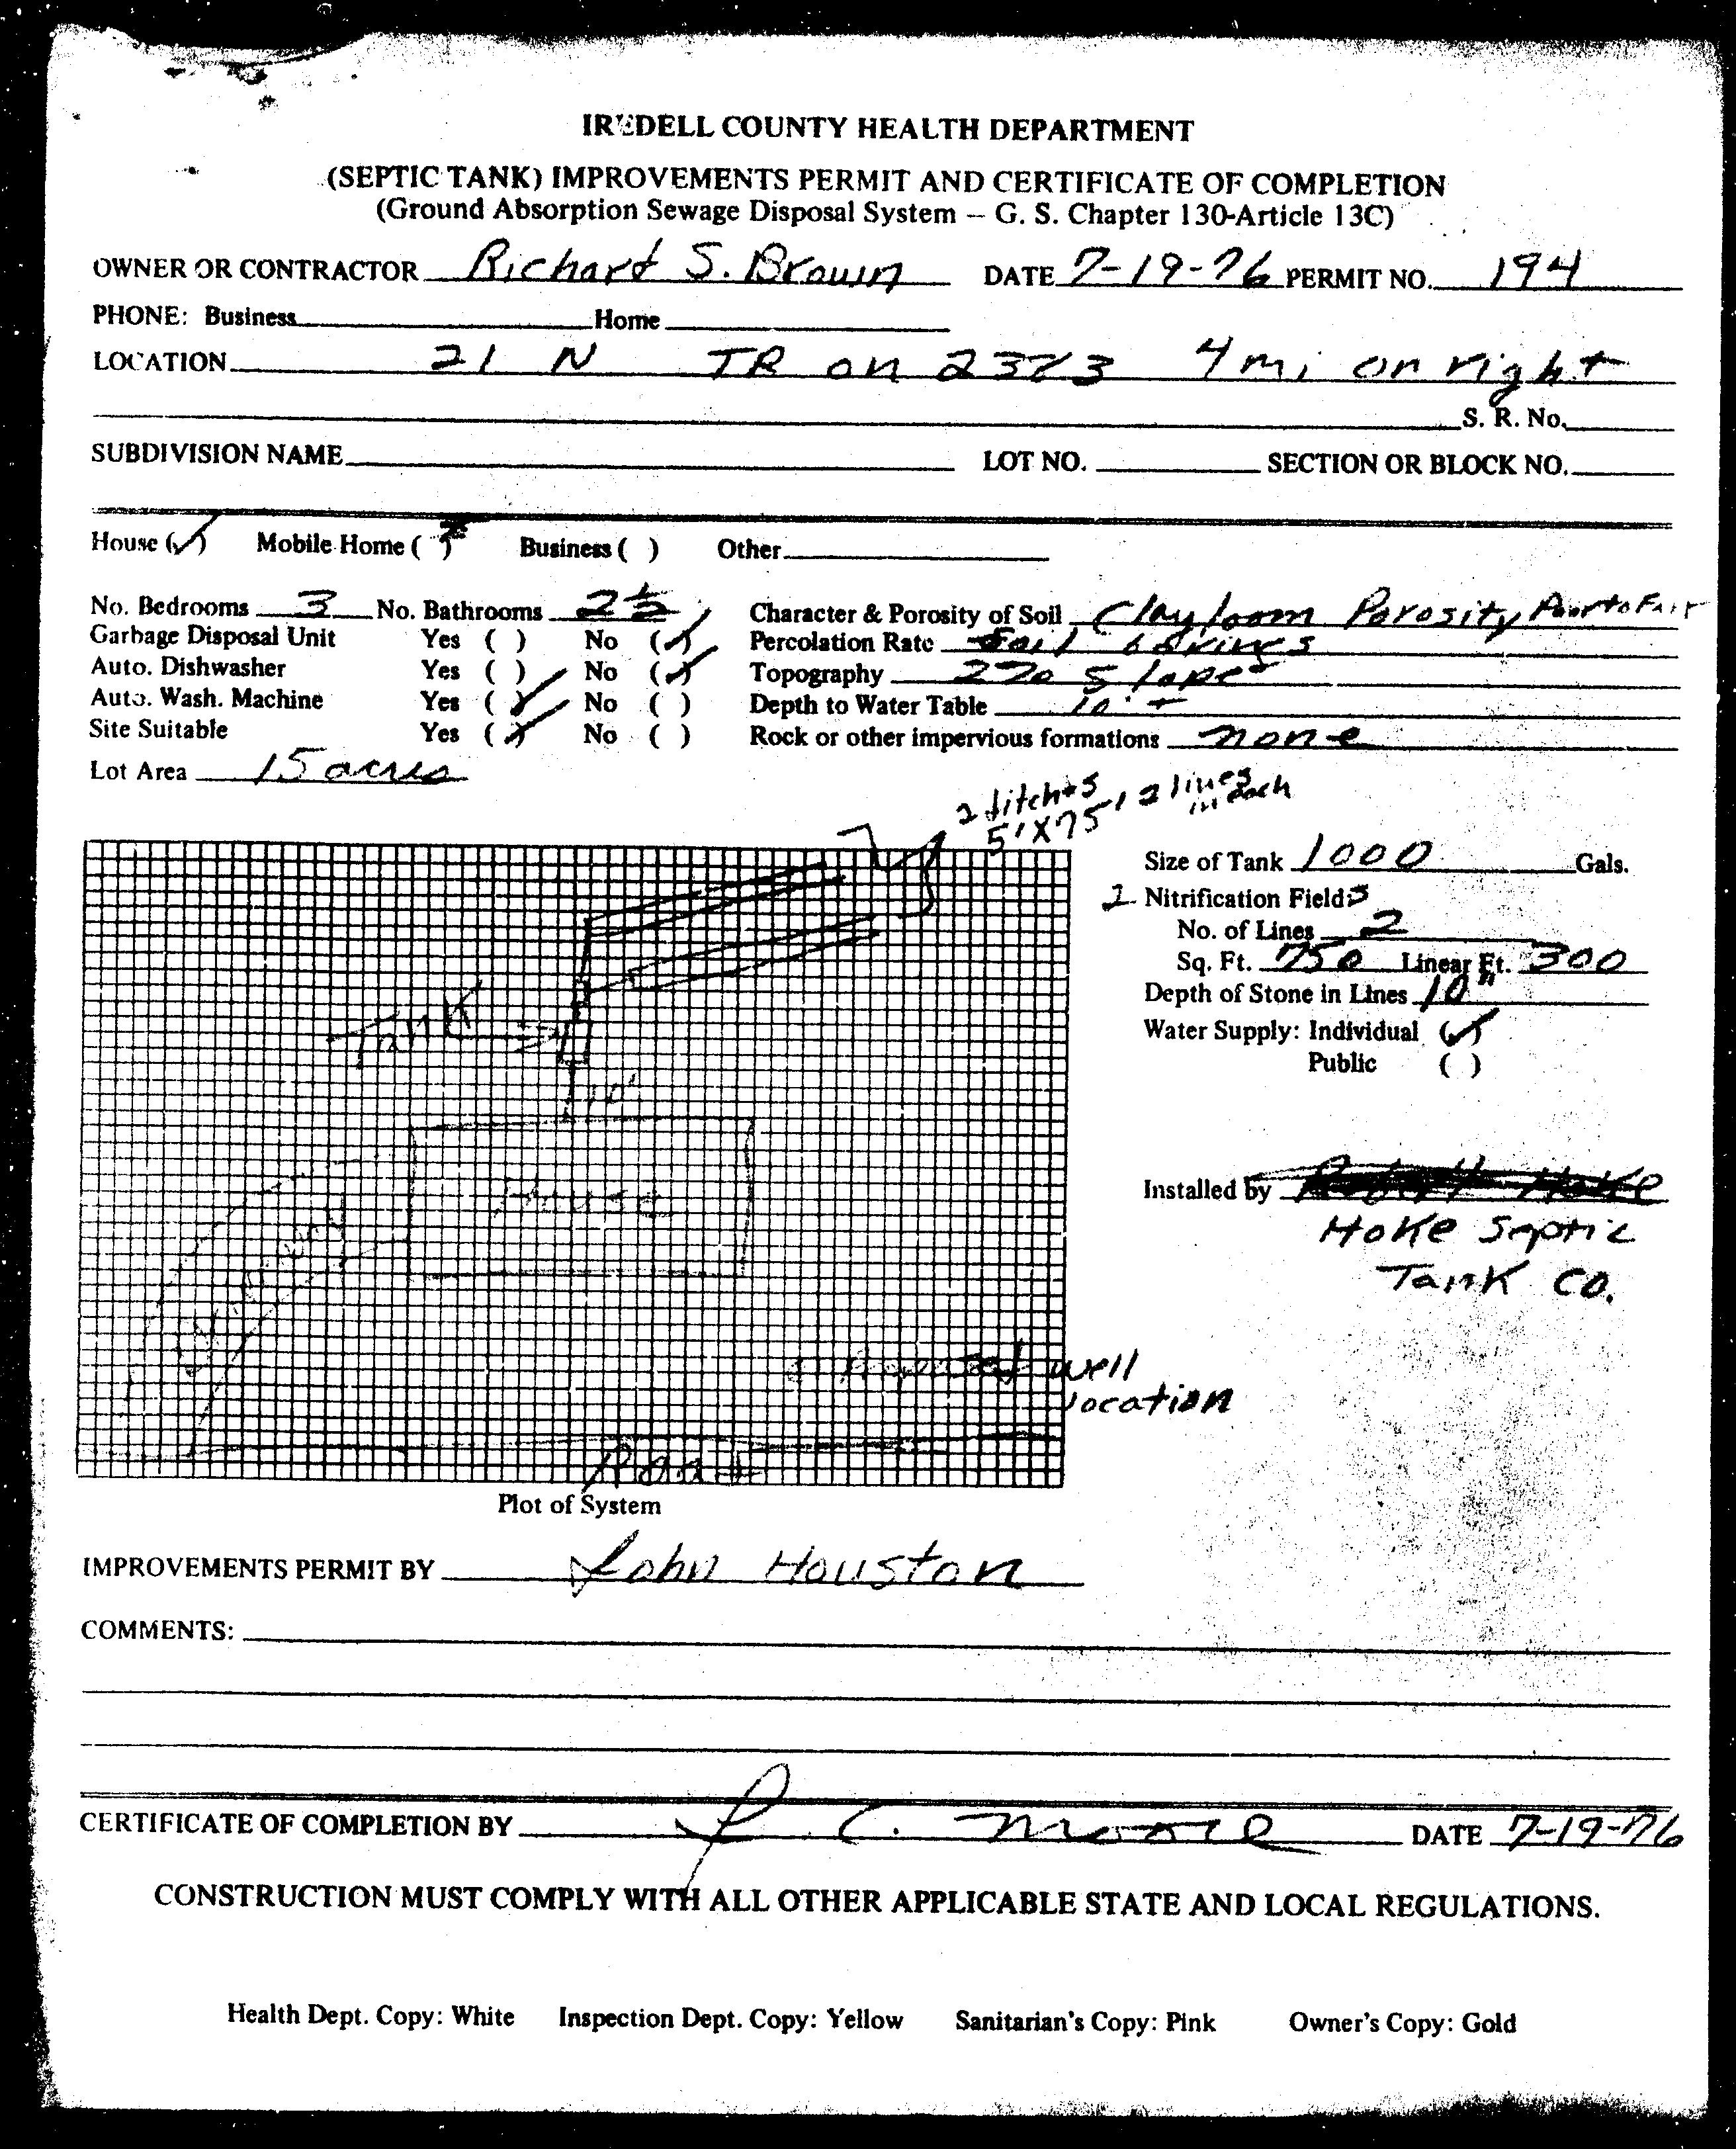 IREDELL COUNTY HEALTH DEPARTMENT
(SEPTIC TANK) IMPROVEMENTS PERMIT AND CERTIFICATE OF COMPLETION
(Ground Absorption Sewage Disposal System – G. S. Chapter 130-Article 13C)
OWNER OR CONTRACTOR Richard S. Brown DATE 7-19-76 PERMIT NO. 194
PHONE: Business Home
LOCATION 21 N TR on 4 mi on right
S. R. No.
SUBDIVISION NAME LOT NO. SECTION OR BLOCK NO.
House (✓) Mobile Home ( ) Business ( ) Other
No. Bedrooms 3 No. Bathrooms 2½ Character & Porosity of Soil Clayloam Porosity Poor to Fair
Garbage Disposal Unit Yes ( ) No (✓) Percolation Rate Soil borings
Auto. Dishwasher Yes ( ) No (✓) Topography 2% Slope
Auto. Wash. Machine Yes (✓) No ( ) Depth to Water Table 10' +
Site Suitable Yes (✓) No ( ) Rock or other impervious formations none
Lot Area 15 acres
2 ditches
5'X75' 2 lines in each
Size of Tank 1000 Gals.
2 Nitrification Fields
No. of Lines 2
Sq. Ft. 750 Linear Ft. 300
Depth of Stone in Lines 10"
Water Supply: Individual (✓)
Public ( )
Tank
10'
House
Installed by
Hoke Septic
Tank Co.
proposed well
location
Road
Plot of System
IMPROVEMENTS PERMIT BY John Houston
COMMENTS:
CERTIFICATE OF COMPLETION BY C. Moore DATE 7-19-76
CONSTRUCTION MUST COMPLY WITH ALL OTHER APPLICABLE STATE AND LOCAL REGULATIONS.
Health Dept. Copy: White Inspection Dept. Copy: Yellow Sanitarian's Copy: Pink Owner's Copy: Gold